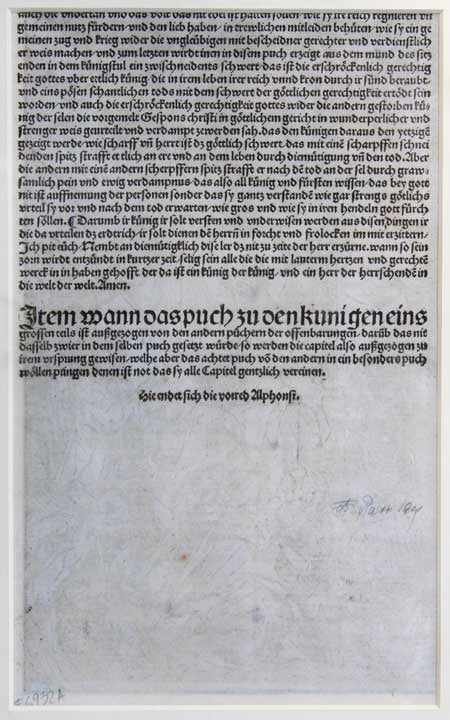 auch die undertan vnd das volk das mit edel ist halten söllen wie sy ire reich regnieren vn
gemeinen nutz fürdern · vnd den lieb haben · in trewlichen mitleiden behüten · wie sy ein ge
meinen zug vnd krieg wider die vngleübigen mit bescheidner gerechter vnd verdienstlich
er weis machen · vnd zum letzten wirdt inen in disem puch erzeigt aus dem mund des sitz
enden in dem künigstul ein zwischneidents schwert · das ist die erschröckenlich gerechtig
keit gottes vber ettlich künig · die in irem leben irer reich vnnd kron durch ir sünd beraubt ·
vnd eins pösen schantlichen tods mit dem schwert der götlichen gerechtigkeit ertödt sein
worden · vnd auch die erschröckenlich gerechtigkeit gottes wider die andern gestorben kü-
nig der selen die vorgemelt Gespons christi in götlichem gericht in wunderperlicher vnd
strenger weis geurteilt vnd verdampt zewerden sah · das den künigen daraus den yetzigē
gezeigt werde · wie scharff vn̄ herrt ist dz götlich schwert · das mit einē scharpffen schnei
denden spitz strafft etlich an ere vnd an dem leben durch diemütigung vn̄ den tod · Aber
die andern mit einē andern scherpffern spitz strafft er nach dē tod an der sel durch graw-
samlich pein vnd ewig verdampnus · das also all künig vnd fürsten wissen · das bey gote
nit ist auffnemung der personen · sonder das sy gantz verstandē wie gar strengs götlichs
vrteil sy vor vnd nach den tod erwarten · wie gros vnd wie sy in iren hendeln gott fürch
ten söllen · Darumb ir künig ir solt verstēn vnd vnderwisen werden aus disen dingen ir
die da vrteilen dz erdtrich · ir solt dienen dē herrn̄ in forcht vnd frolocken im mit erzitern ·
Ich pit eüch · Nembt an diemütigklich dise ler dz nit zu zeite der herr erzürne · wann so sein
zorn wirdt entzündt in kurtzer zeit · selig sein alle die die mit lauterm hertzen vnd gerechtē
werck in in haben gehofft · der da ist ein künig der künig · vnd ein herr der herrschenden in
die welt der welt. Amen.
Item wann das puch zu den kunigen eins
grossen teils ist außgezogen von den andern püchern der offenbarungen · darūb das nit
dasselb zwier in dem selben puch gesetz würde · so werden die capitel also außgezogen zu
irem vrspung gewisen · welhe aber das achtet puch vō den andern in ein besonders puch
wöllen pringen denen ist not das sy alle Capitel gentzlich vereinen.
Hie endet sich die vorred Alphonsi.